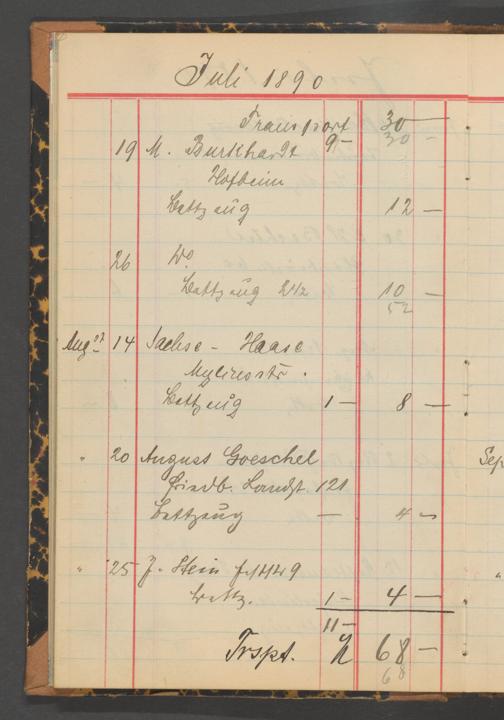 Juli 1890
Transport 9– 30 –
30 –
19 M. Burkhardt
Hofheim
Bettzeug 12 –
26 Do
Bettzeug 2 1/2 10 –
52
Augst 14 Sachse – Haase
Myliusstr.
Bettzeug 1 – 8 –
" 20 August Goeschel
Friedb. Landst. 121
Bettzeug – 4 –
Sep
" 25 J. Stein
Bettz. 1 – 4 –
11 –
Trspt. 68 –
68